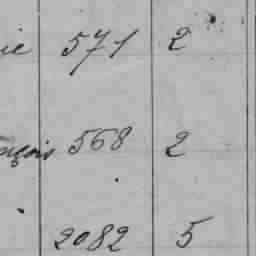 ie 571 2
ançois 568 2
2082 5